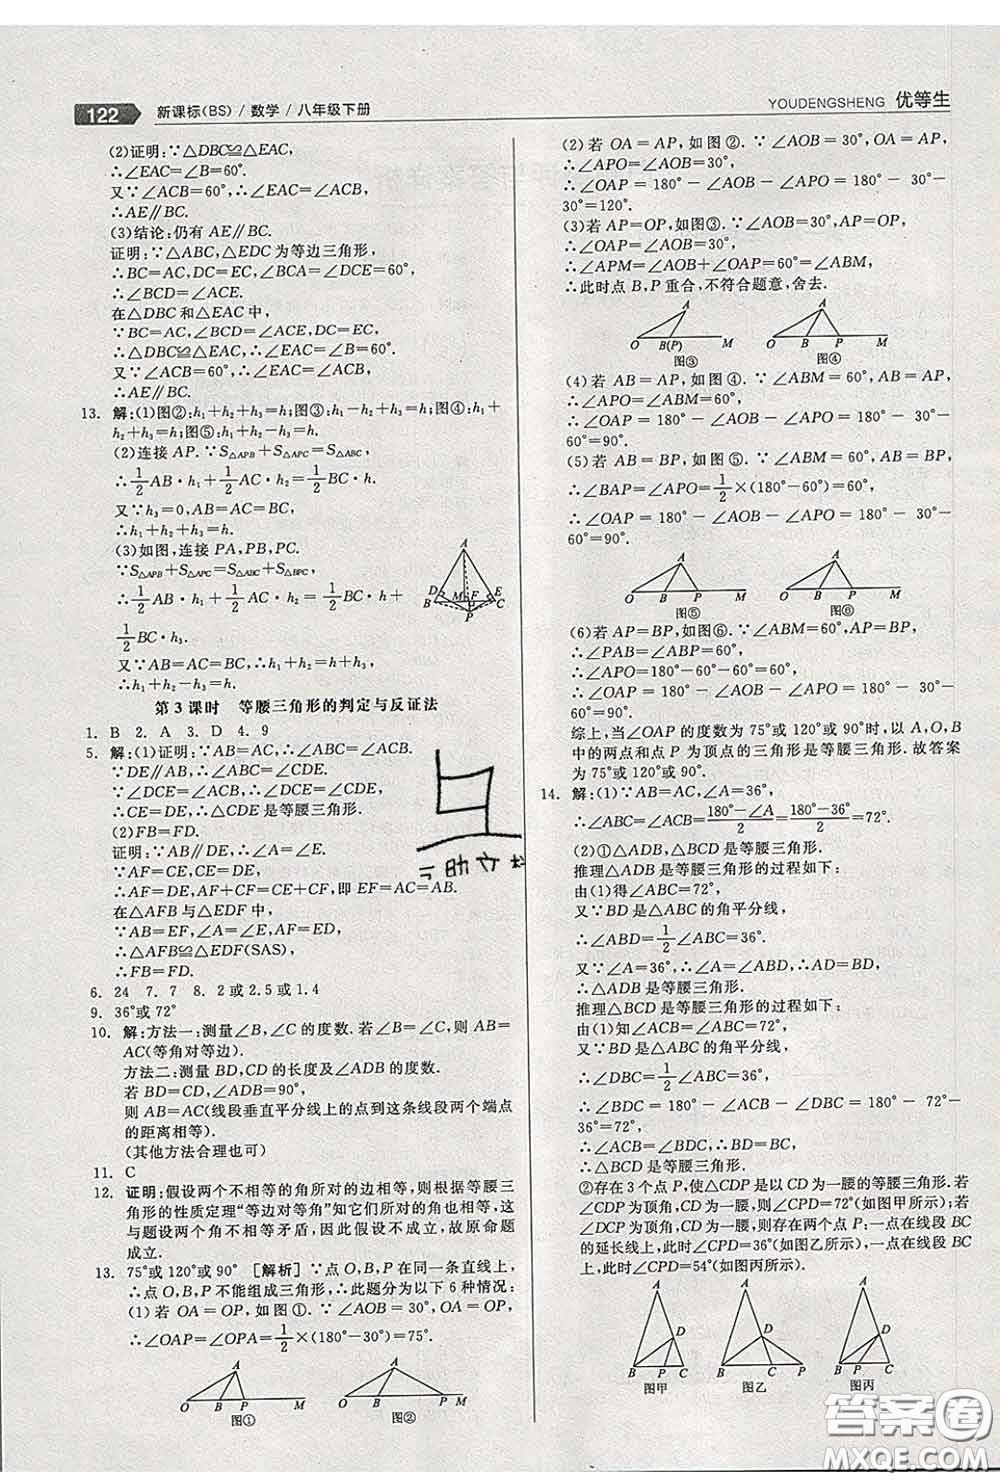 122 新课标(BS)/数学/八年级下册
YOUDENGSHENG 优等生
(2)证明:∵△DBC≌△EAC,
∴∠EAC=∠B=60°.
又∵∠ACB=60°,∴∠EAC=∠ACB,
∴AE∥BC.
(3)结论:仍有 AE∥BC.
证明:∵△ABC,△EDC 为等边三角形,
∴BC=AC,DC=EC,∠BCA=∠DCE=60°,
∴∠BCD=∠ACE.
在△DBC 和△EAC 中,
∵BC=AC,∠BCD=∠ACE,DC=EC,
∴△DBC≌△EAC,∴∠EAC=∠B=60°.
又∵∠ACB=60°,∴∠EAC=∠ACB,
∴AE∥BC.
13. 解:(1)图②:h₁+h₂+h₃=h;图③:h₁-h₂+h₃=h;图④:h₁+
h₂+h₃=h;图⑤:h₁+h₂-h₃=h.
(2)连接 AP.∵S△APB+S△APC=S△ABC,
∴1/2 AB·h₁+1/2 AC·h₂=1/2 BC·h.
又∵h₃=0,AB=AC=BC,
∴h₁+h₂=h,∴h₁+h₂+h₃=h.
(3)如图,连接 PA,PB,PC.
∵S△APB+S△APC=S△ABC+S△BPC,
∴1/2 AB·h₁+1/2 AC·h₂=1/2 BC·h+
1/2 BC·h₃.
又∵AB=AC=BC,∴h₁+h₂=h+h₃,
∴h₁+h₂-h₃=h.
A
D M F E
B P C
第 3 课时 等腰三角形的判定与反证法
1. B 2. A 3. D 4. 9
5. 解:(1)证明:∵AB=AC,∴∠ABC=∠ACB.
∵DE∥AB,∴∠ABC=∠CDE.
∵∠DCE=∠ACB,∴∠DCE=∠CDE,
∴CE=DE,∴△CDE 是等腰三角形.
(2)FB=FD.
证明:∵AB∥DE,∴∠A=∠E.
∵AF=CE,CE=DE,∴AF=DE,
∴AF=DE,AF+CF=CE+CF,即 EF=AC=AB.
在△AFB 与△EDF 中,
∵AB=EF,∠A=∠E,AF=DE,
∴△AFB≌△EDF(SAS),
∴FB=FD.
6. 24 7. 7 8. 2 或 2.5 或 1.4
9. 36°或 72°
10. 解:方法一:测量∠B,∠C 的度数.若∠B=∠C,则 AB=
AC(等角对等边).
方法二:测量 BD,CD 的长度及∠ADB 的度数.
若 BD=CD,∠ADB=90°,
则 AB=AC(线段垂直平分线上的点到这条线段两个端点
的距离相等).
(其他方法合理也可)
11. C
12. 证明:假设两个不相等的角所对的边相等,则根据等腰三
角形的性质定理“等边对等角”知它们所对的角也相等,这
与题设两个角不相等矛盾,因此假设不成立,故原命题
成立.
13. 75°或 120°或 90° [解析]∵点 O,B,P 在同一条直线上,
∴点 O,B,P 不能组成三角形,∴此题分为以下 6 种情况:
(1)若 OA=OP,如图①.∵∠AOB=30°,
∴∠OAP=∠OPA=1/2×(180°-30°)=75°.
A A
O B P M O B P M
图① 图②
(2)若 OA=AP,如图②.∵∠AOB=30°,
∴∠APO=∠AOB=30°,
∴∠OAP=180°-∠AOB-∠APO=180°-30°-
30°=120°.
(3)若 AP=OP,如图③.∵∠AOB=30°,
∴∠OAP=∠AOB=30°,
∴∠APM=∠AOB+∠OAP=60°=∠ABM,
∴此时点 B,P 重合,不符合题意,舍去.
O B(P) M O B P M
图③ 图④
(4)若 AB=AP,如图④.∵∠ABM=60°,
∴∠APO=∠ABM=60°,
∴∠OAP=180°-∠AOB-∠APO=180°-30°-
60°=90°.
(5)若 AB=BP,如图⑤.∵∠ABM=60°,
∴∠BAP=∠APO=1/2×(180°-60°)=60°,
∴∠OAP=180°-∠AOB-∠APO=180°-30°-
60°=90°.
A A
O B P M O B P M
图⑤ 图⑥
(6)若 AP=BP,如图⑥.∵∠ABM=60°,
∴∠PAB=∠ABP=60°,
∴∠APO=180°-60°-60°=60°,
∴∠OAP=180°-∠AOB-∠APO=180°-30°-
60°=90°.
综上,当∠OAP 的度数为 75°或 120°或 90°时,以 A,O,B
中的两点和点 P 为顶点的三角形是等腰三角形.故答案
为 75°或 120°或 90°.
14. 解:(1)∵AB=AC,∠A=36°,
∴∠ABC=∠ACB=(180°-∠A)/2=(180°-36°)/2=72°.
(2)①△ADB,△BCD 是等腰三角形.
推理△ADB 是等腰三角形的过程如下:
由(1)得∠ABC=72°,
又∵BD 是△ABC 的角平分线,
∴∠ABD=1/2∠ABC=36°.
又∵∠A=36°,∴∠A=∠ABD,∴AD=BD,
∴△ADB 是等腰三角形.
推理△BCD 是等腰三角形的过程如下:
由(1)知∠ABC=∠ACB=72°,
又∵BD 是△ABC 的角平分线,
∴∠DBC=1/2∠ABC=36°,
∴∠BDC=180°-∠ACB-∠DBC=180°-72°-
36°=72°,
∴∠ACB=∠BDC,∴BD=BC,
∴△BCD 是等腰三角形.
②存在 3 个点 P,使△CDP 是以 CD 为一腰的等腰三角形;若
△CDP 为锐角三角形,CD 为一腰,则∠CPD=72°(如图甲所示);若
△DCP 为钝角三角形,CD 为一腰,则存在两个点 P:一点在线段 BC
的延长线上,此时∠CPD=36°(如图乙所示),一点在线段 BC
上,此时∠CPD=54°(如图丙所示).
D D D
B P C B C P B P C
图甲 图乙 图丙
答案圈
MXQE.COM